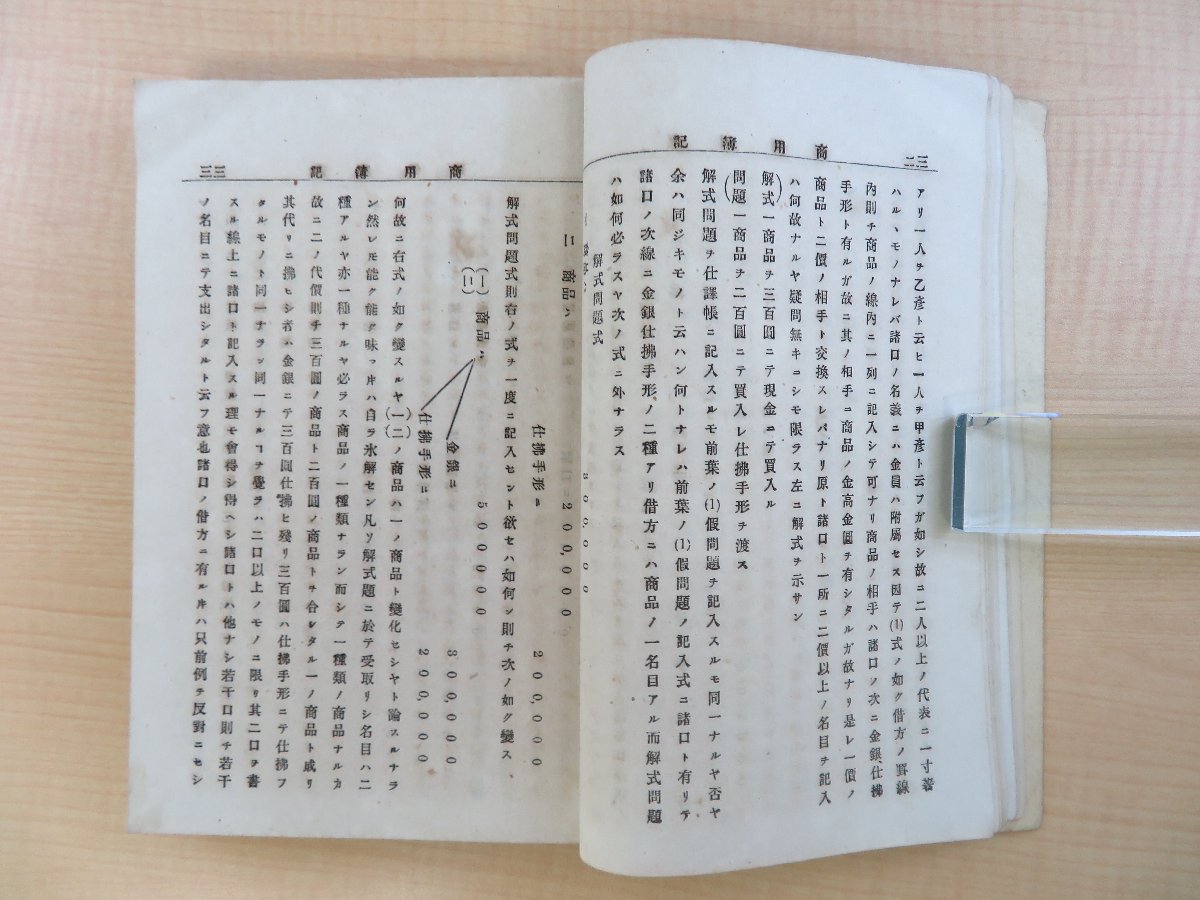 商用簿記
三二
アリ一人ヲ乙彥ト云ヒ一人ヲ甲彥ト云フガ如シ故ニ二人以上ノ代表ニ一寸著
ハル、モノナレバ諸口ノ名義ニハ金員ハ附屬セス因テ(1)式ノ如ク借方ノ罫線
內則チ商品ノ線內ニ一列ニ記入シテ可ナリ商品ノ相手ハ諸口ノ次ニ金銀仕拂
手形ト有ルガ故ニ其ノ相手ニ商品ノ金高金圓ヲ有シタルガ故ナリ是レ一價ノ
商品ト二價ノ相手ト交換スレバナリ原ト諸口ト一所ニ二價以上ノ名目ヲ記入
ハ何故ナルヤ疑問無キニシモ限ラス左ニ解式ヲ示サン
(解式)一商品ヲ三百圓ニテ現金ニテ買入ル
(問題)一商品ヲ二百圓ニテ買入レ仕拂手形ヲ渡ス
解式問題ヲ仕譯帳ニ記入スルモ前葉ノ(1)假問題ヲ記入スルモ同一ナルヤ否ヤ
余ハ同ジキモノト云ハン何トナレハ前葉ノ(1)假問題ノ記入式ニ諸口ト有リテ
諸口ノ次線ニ金銀仕拂手形ノ二種アリ借方ニハ商品ノ一名目アル而解式問題
ハ如何必ラスヤ次ノ式ニ外ナラス
解式問題式
商用簿記
三三
二 商品ハ
200,000
仕拂手形ニ
200,000
解式問題式則右ノ式ヲ一度ニ記入セント欲セハ如何ン則チ次ノ如ク變ス
(一)
(二)
商品ハ
500,000
金銀ニ
300,000
仕拂手形ニ
200,000
何故ニ右式ノ如ク變スルヤ(一)(二)ノ商品ハ一ノ商品ト變化セシヤト論スルナラ
ン然レモ能ク能ク味っ片ハ自ラ氷解セン凡ソ解式題ニ於テ受取リシ名目ハ二
種アルヤ亦一種ナルヤ必ラス商品ノ一種類ナラン而シテ一種類ノ商品ナルカ
故ニ二ノ代價則チ三百圓ノ商品ト二百圓ノ商品トヲ合シタル一ノ商品ト成リ
其代リニ拂ヒシ者ハ金銀ニテ三百圓仕拂ヒ殘リ三百圓ハ仕拂手形ニテ仕拂フ
タルモノト同一ナラッ同一ナルコヲ覺ラハ二口以上ノモノニ限リ其二口ヲ書
スル線上ニ諸口ト記入スル理モ會得シ得ヘシ諸口トハ他ナシ若干口則チ若干
ノ名目ニテ支出シタルト云フ意也諸口ノ借方ニ有ル片ハ只前例ヲ反對ニセシ